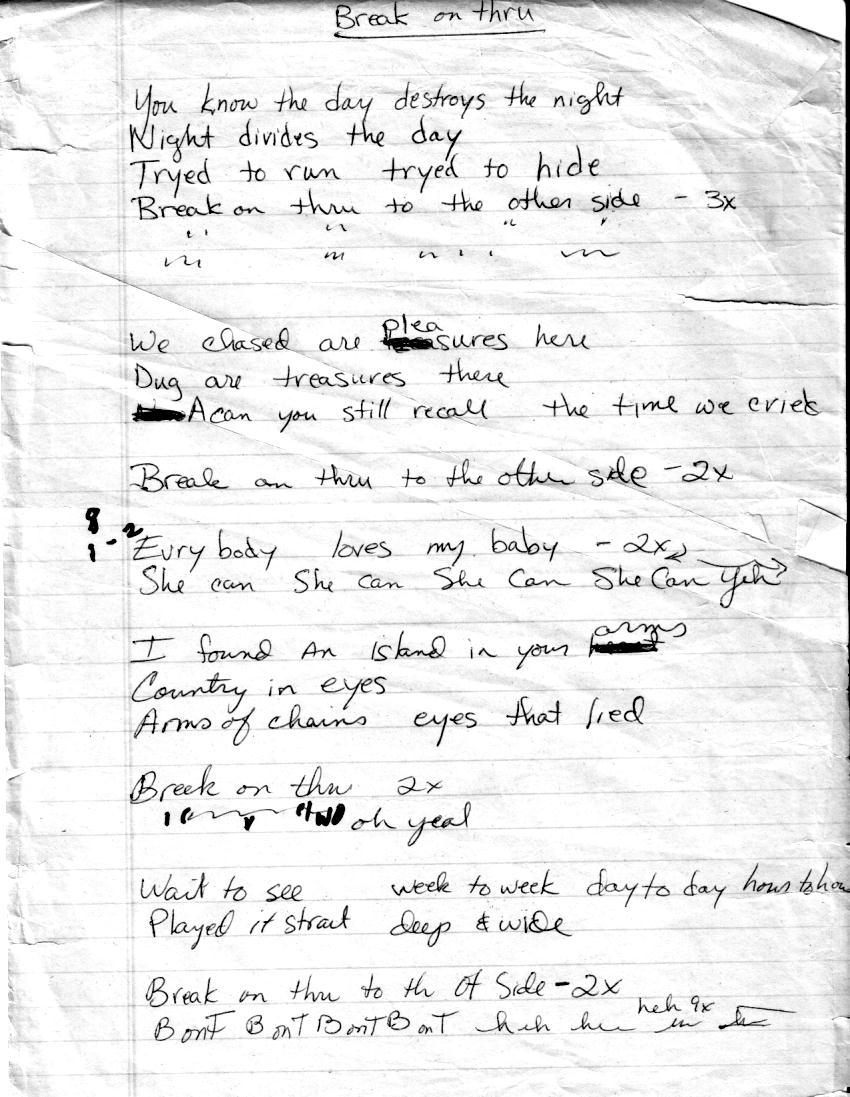 Break on thru
You know the day destroys the night
Night divides the day
Tryed to run tryed to hide
Break on thru to the other side - 3x
We chased are pleasures here
Dug are treasures there
Acan you still recall the time we cried
Break on thru to the other side - 2x
8
1-2
Evry body loves my baby - 2x
She can She can She Can She Can Yeh
I found An Island in your arms
Country in eyes
Arms of chains eyes that lied
Break on thru 2x
oh yeah
Wait to see week to week day to day hour to hou
Played it strait deep & wide
Break on thru to th Ot Side - 2x
BonT BonT BonT BonT heh 9x